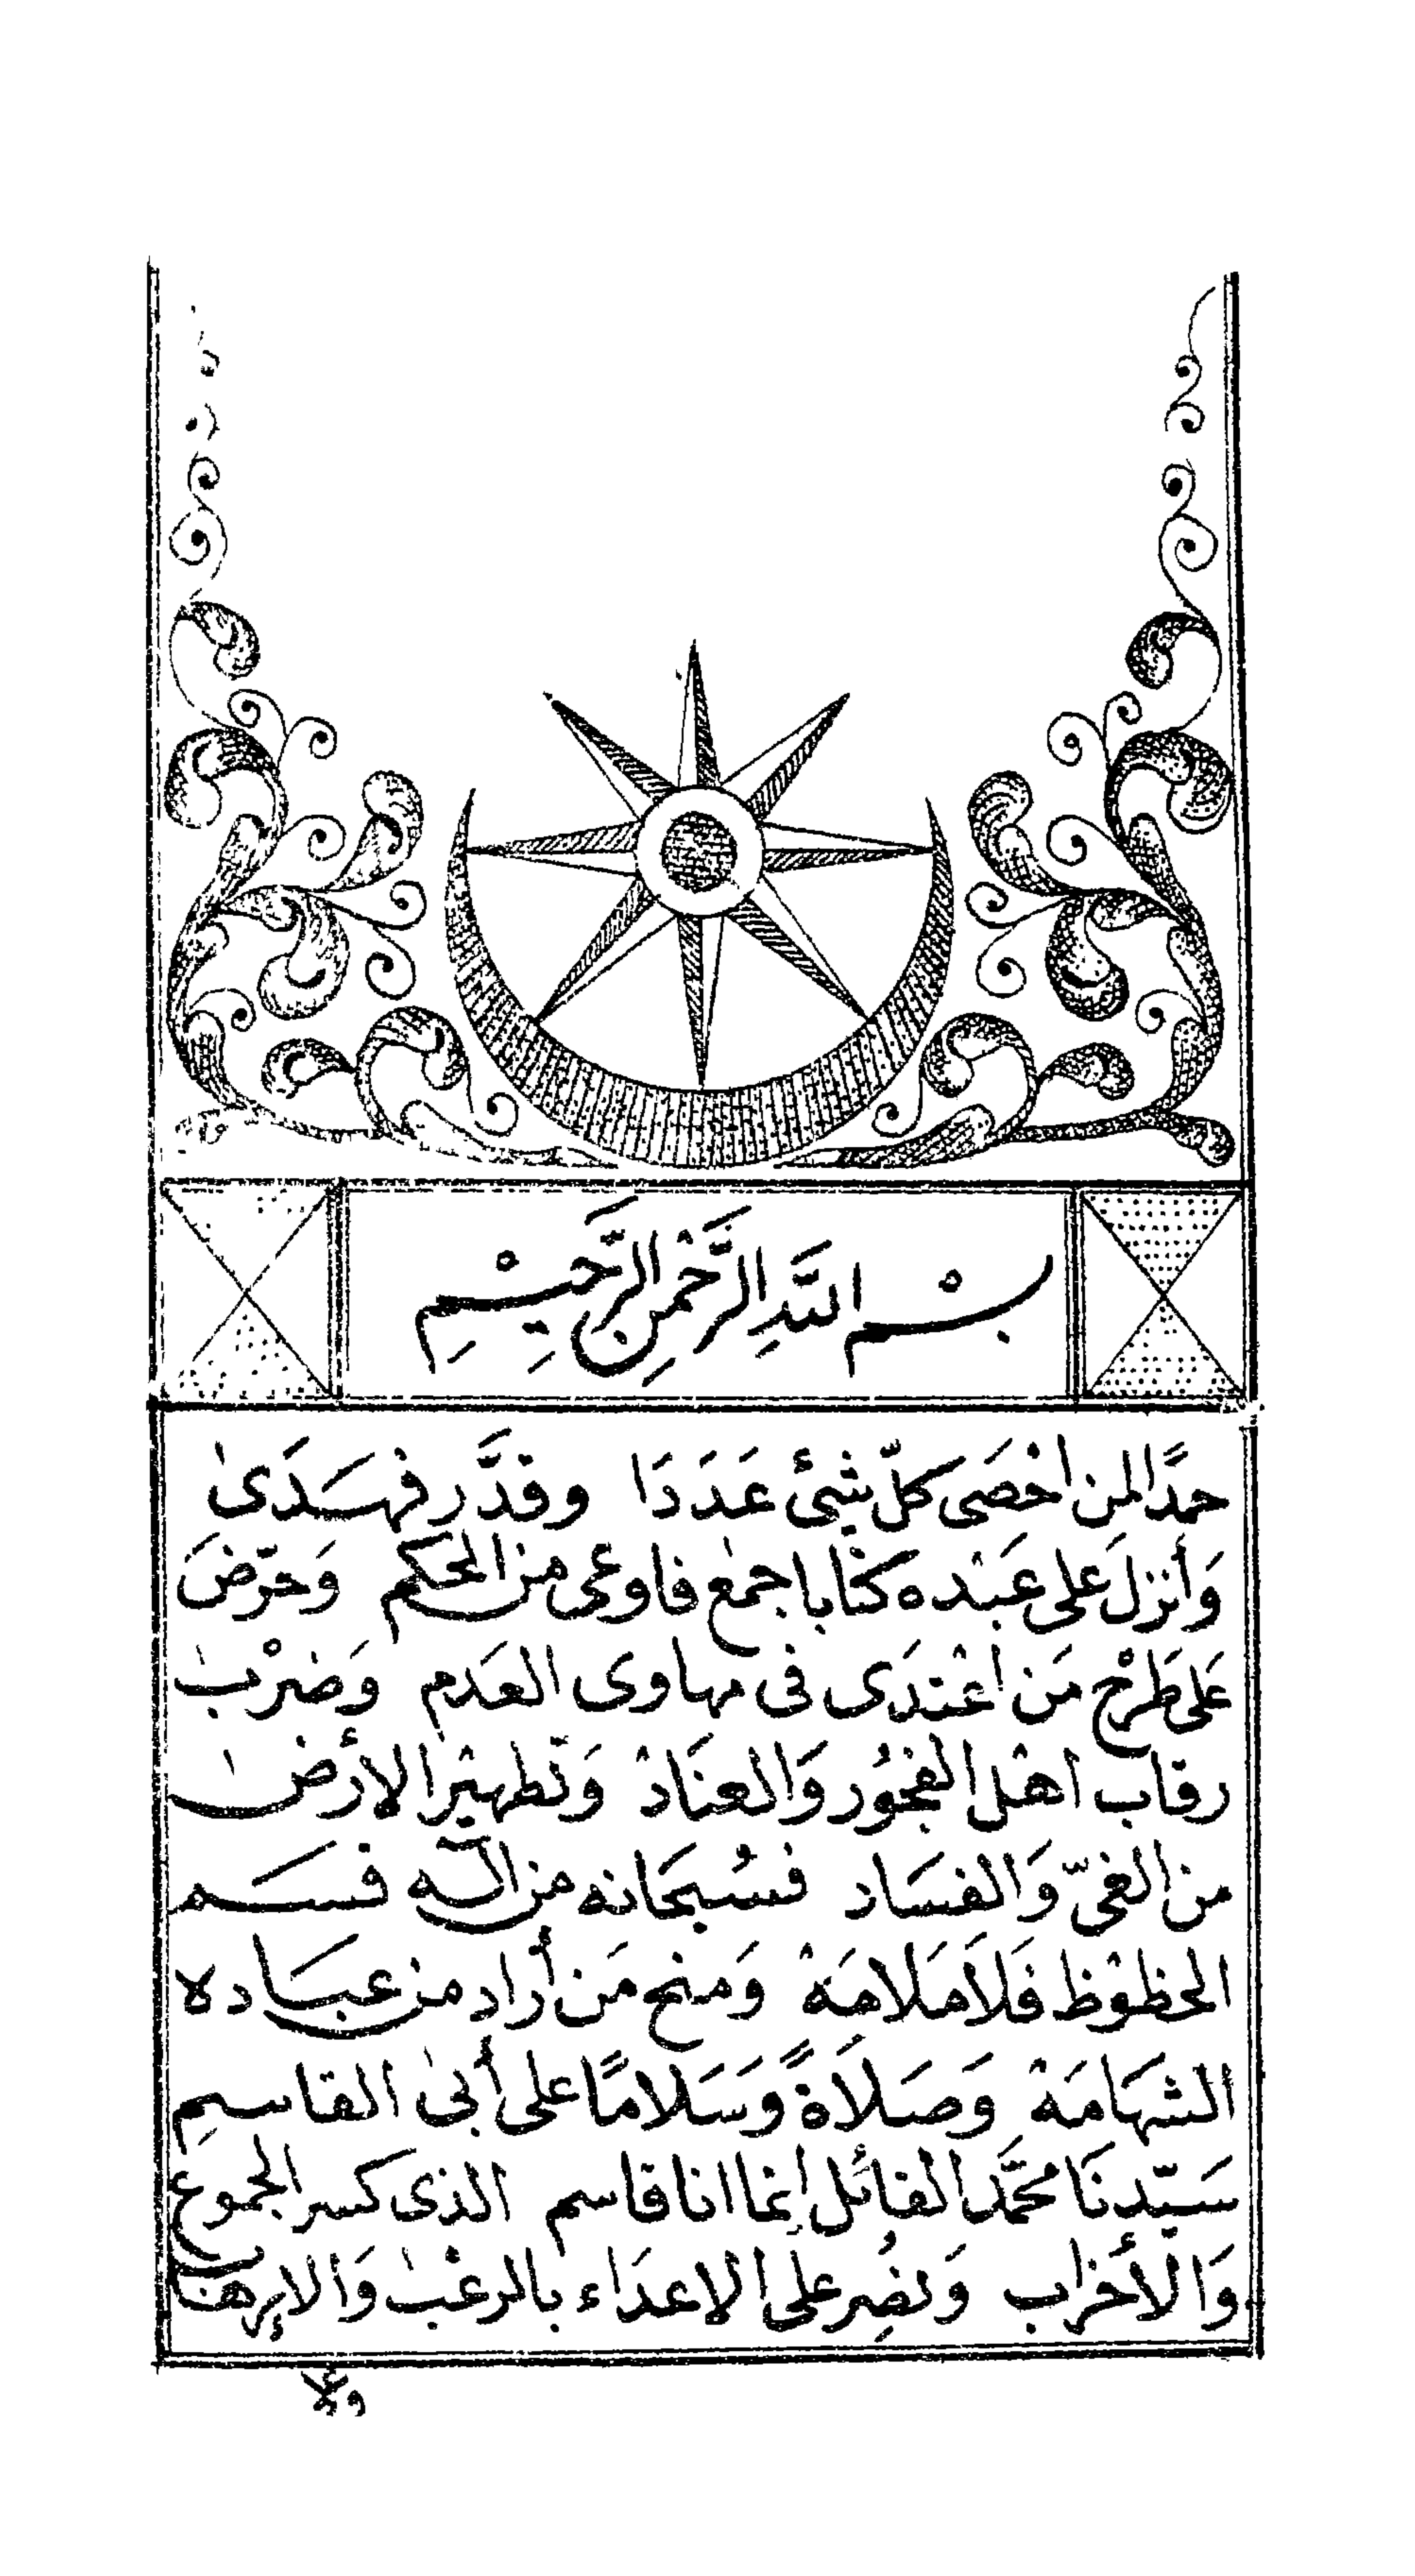 بِسْمِ اللَّهِ الرَّحْمٰنِ الرَّحِيْمِ
حمدًا لمن احْصَى كلّ شئ عَدَدَا وقدَّر فهَدَى
وَأنزلَ عَلى عَبْده كتابا جمع فاوعى من الحكم وَحرّضَ
عَلى طَرْح مَن اعْتدَى فى مهاوى العَدم وَضرْب
رقاب اهْل الفجُور وَالعنَادْ وَتطهيْر الأرض
من الغىّ وَالفسَاد فسُبحَانه من اله قسَم
الحظوْظ فَلَا مَلامَهْ وَمنح مَن أراد من عبَاده
الشهَامَهْ وَصَلاَةً وَسَلامًا على أبى القاسمِ
سَيّدنَا محمَّد القائل إنما انا قاسم الذى كسر الجموع
وَالأحْزاب وَنصِر على الاعدَاء بالرعْب وَالإرهاب
وعلا